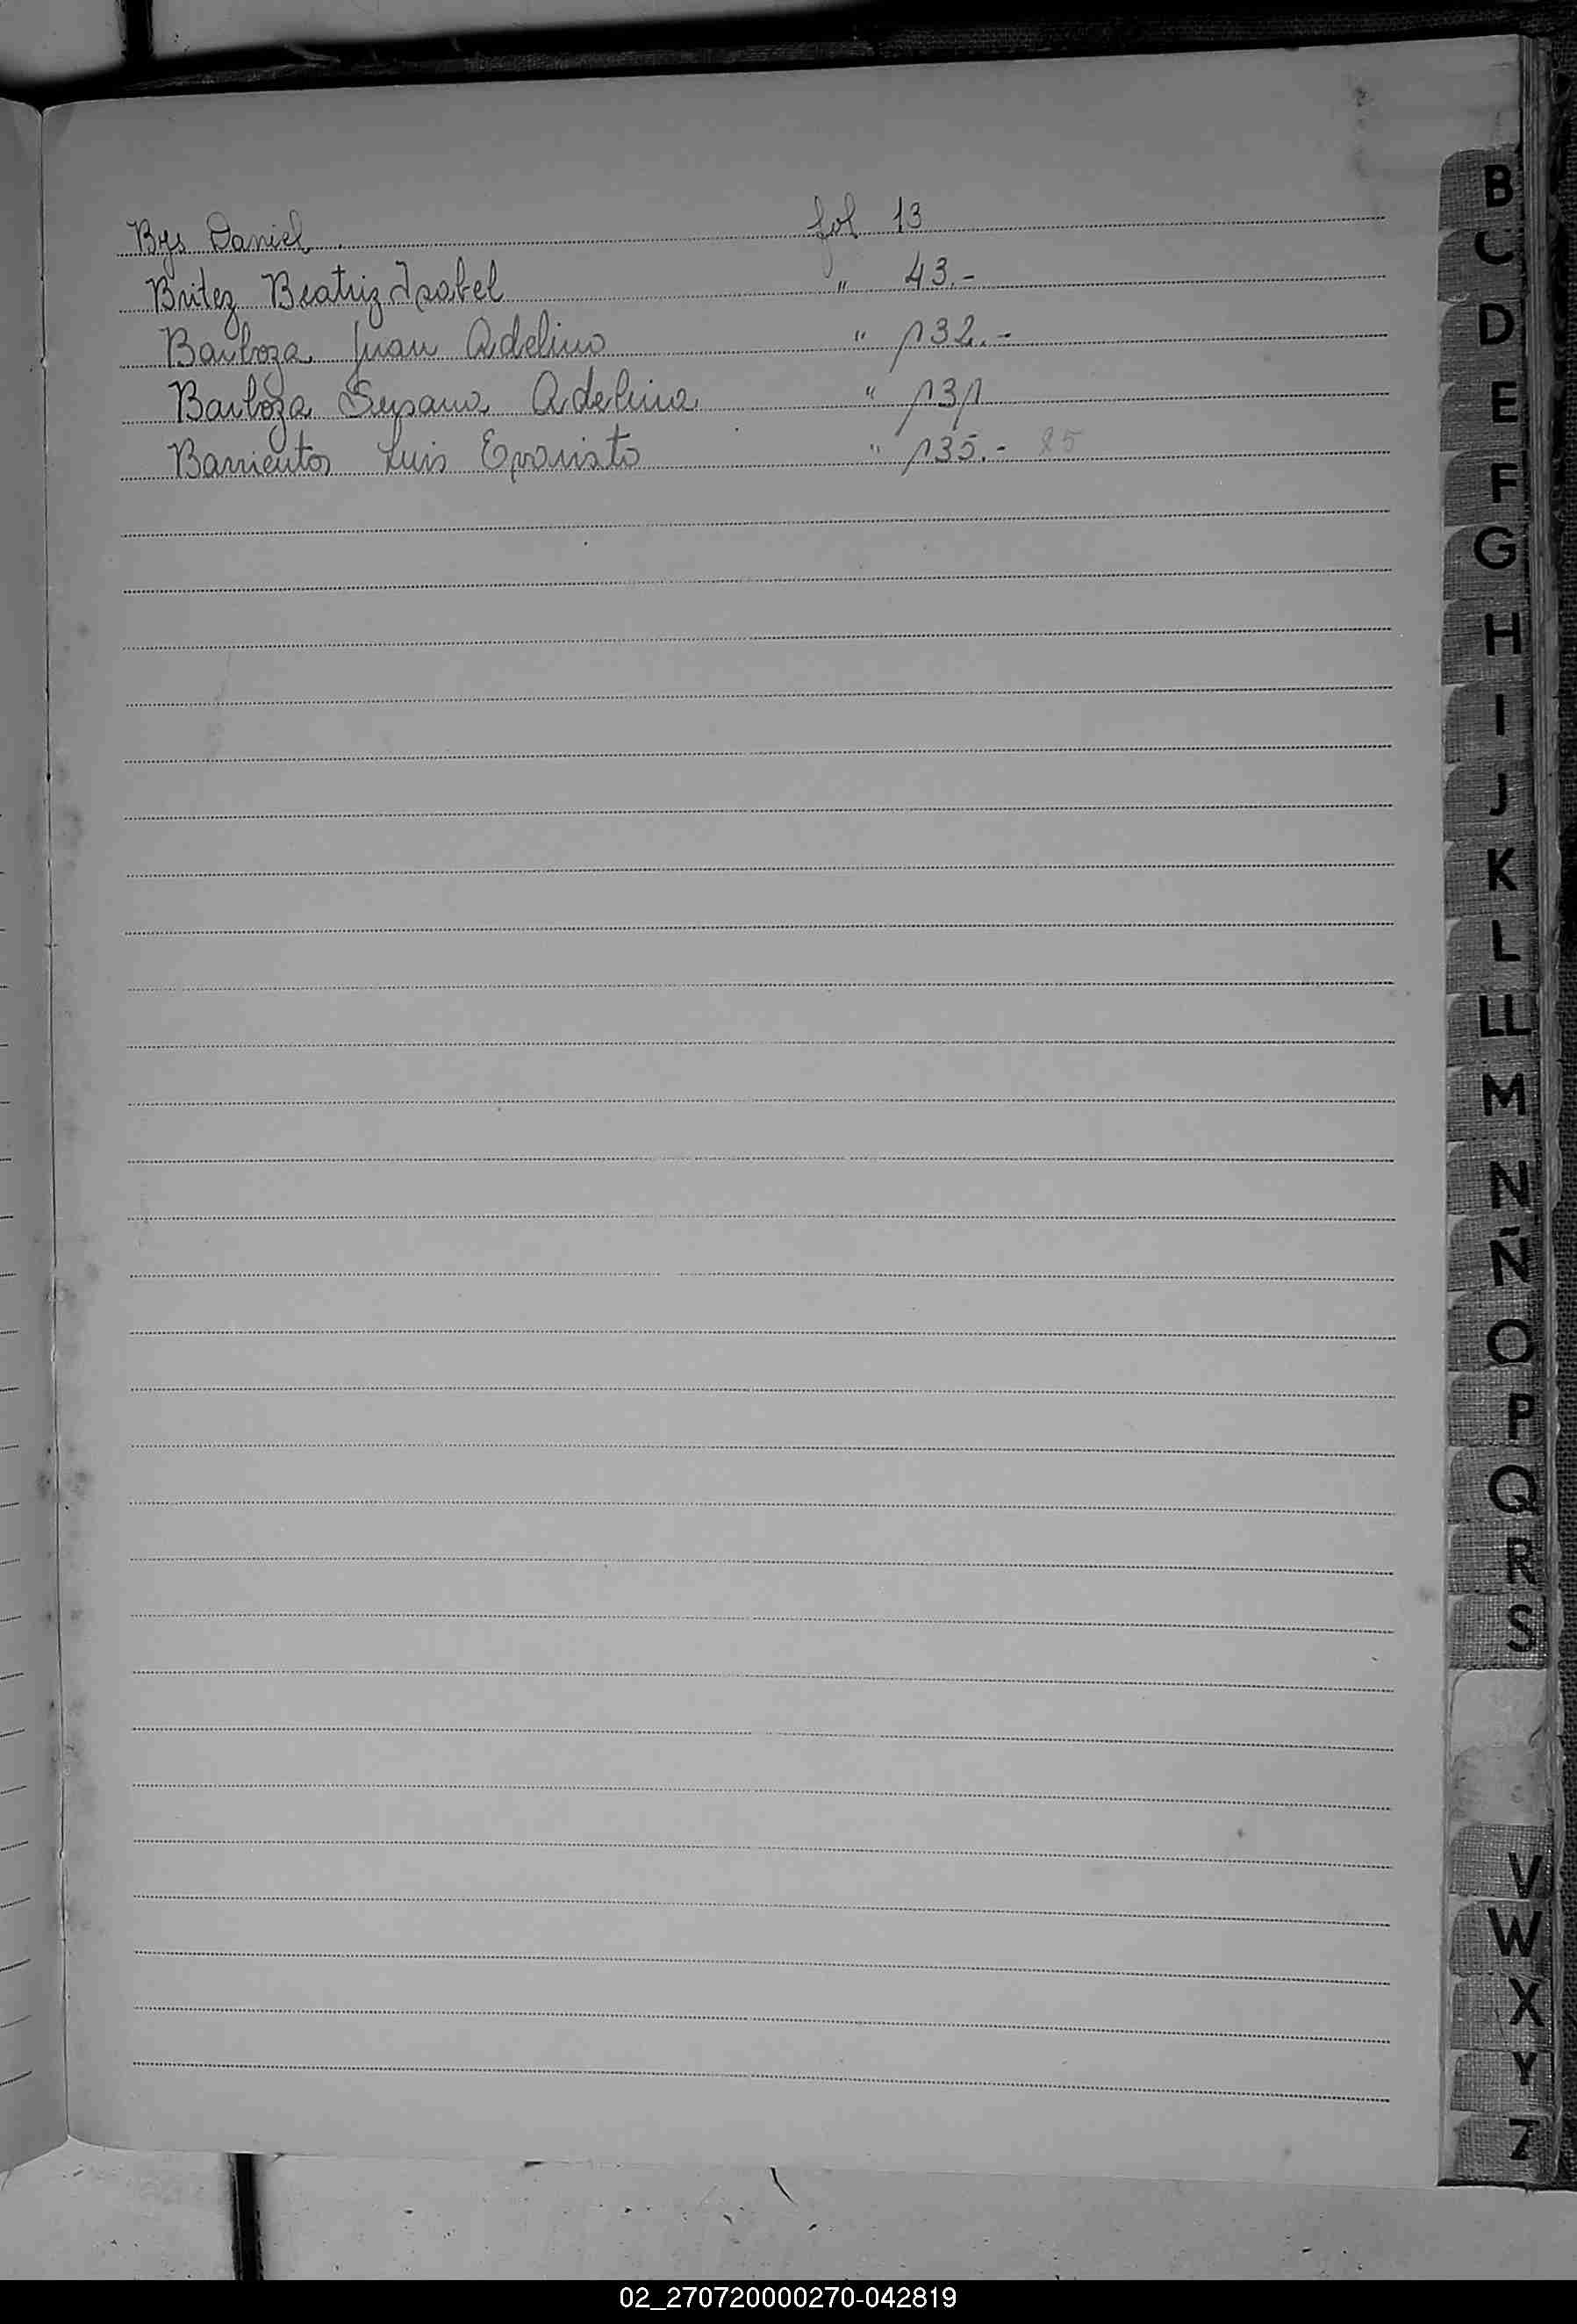 Bys Daniel fol 13
Britez Beatriz Isabel " 43.-
Barboza Juan Adelino " 132.-
Barboza Susana Adelina " 131
Barrientos Luis Evaristo " 135.- 85
B
C
D
E
F
G
H
I
J
K
L
LL
M
N
Ñ
O
P
Q
R
S
V
W
X
Y
Z
02_270720000270-042819